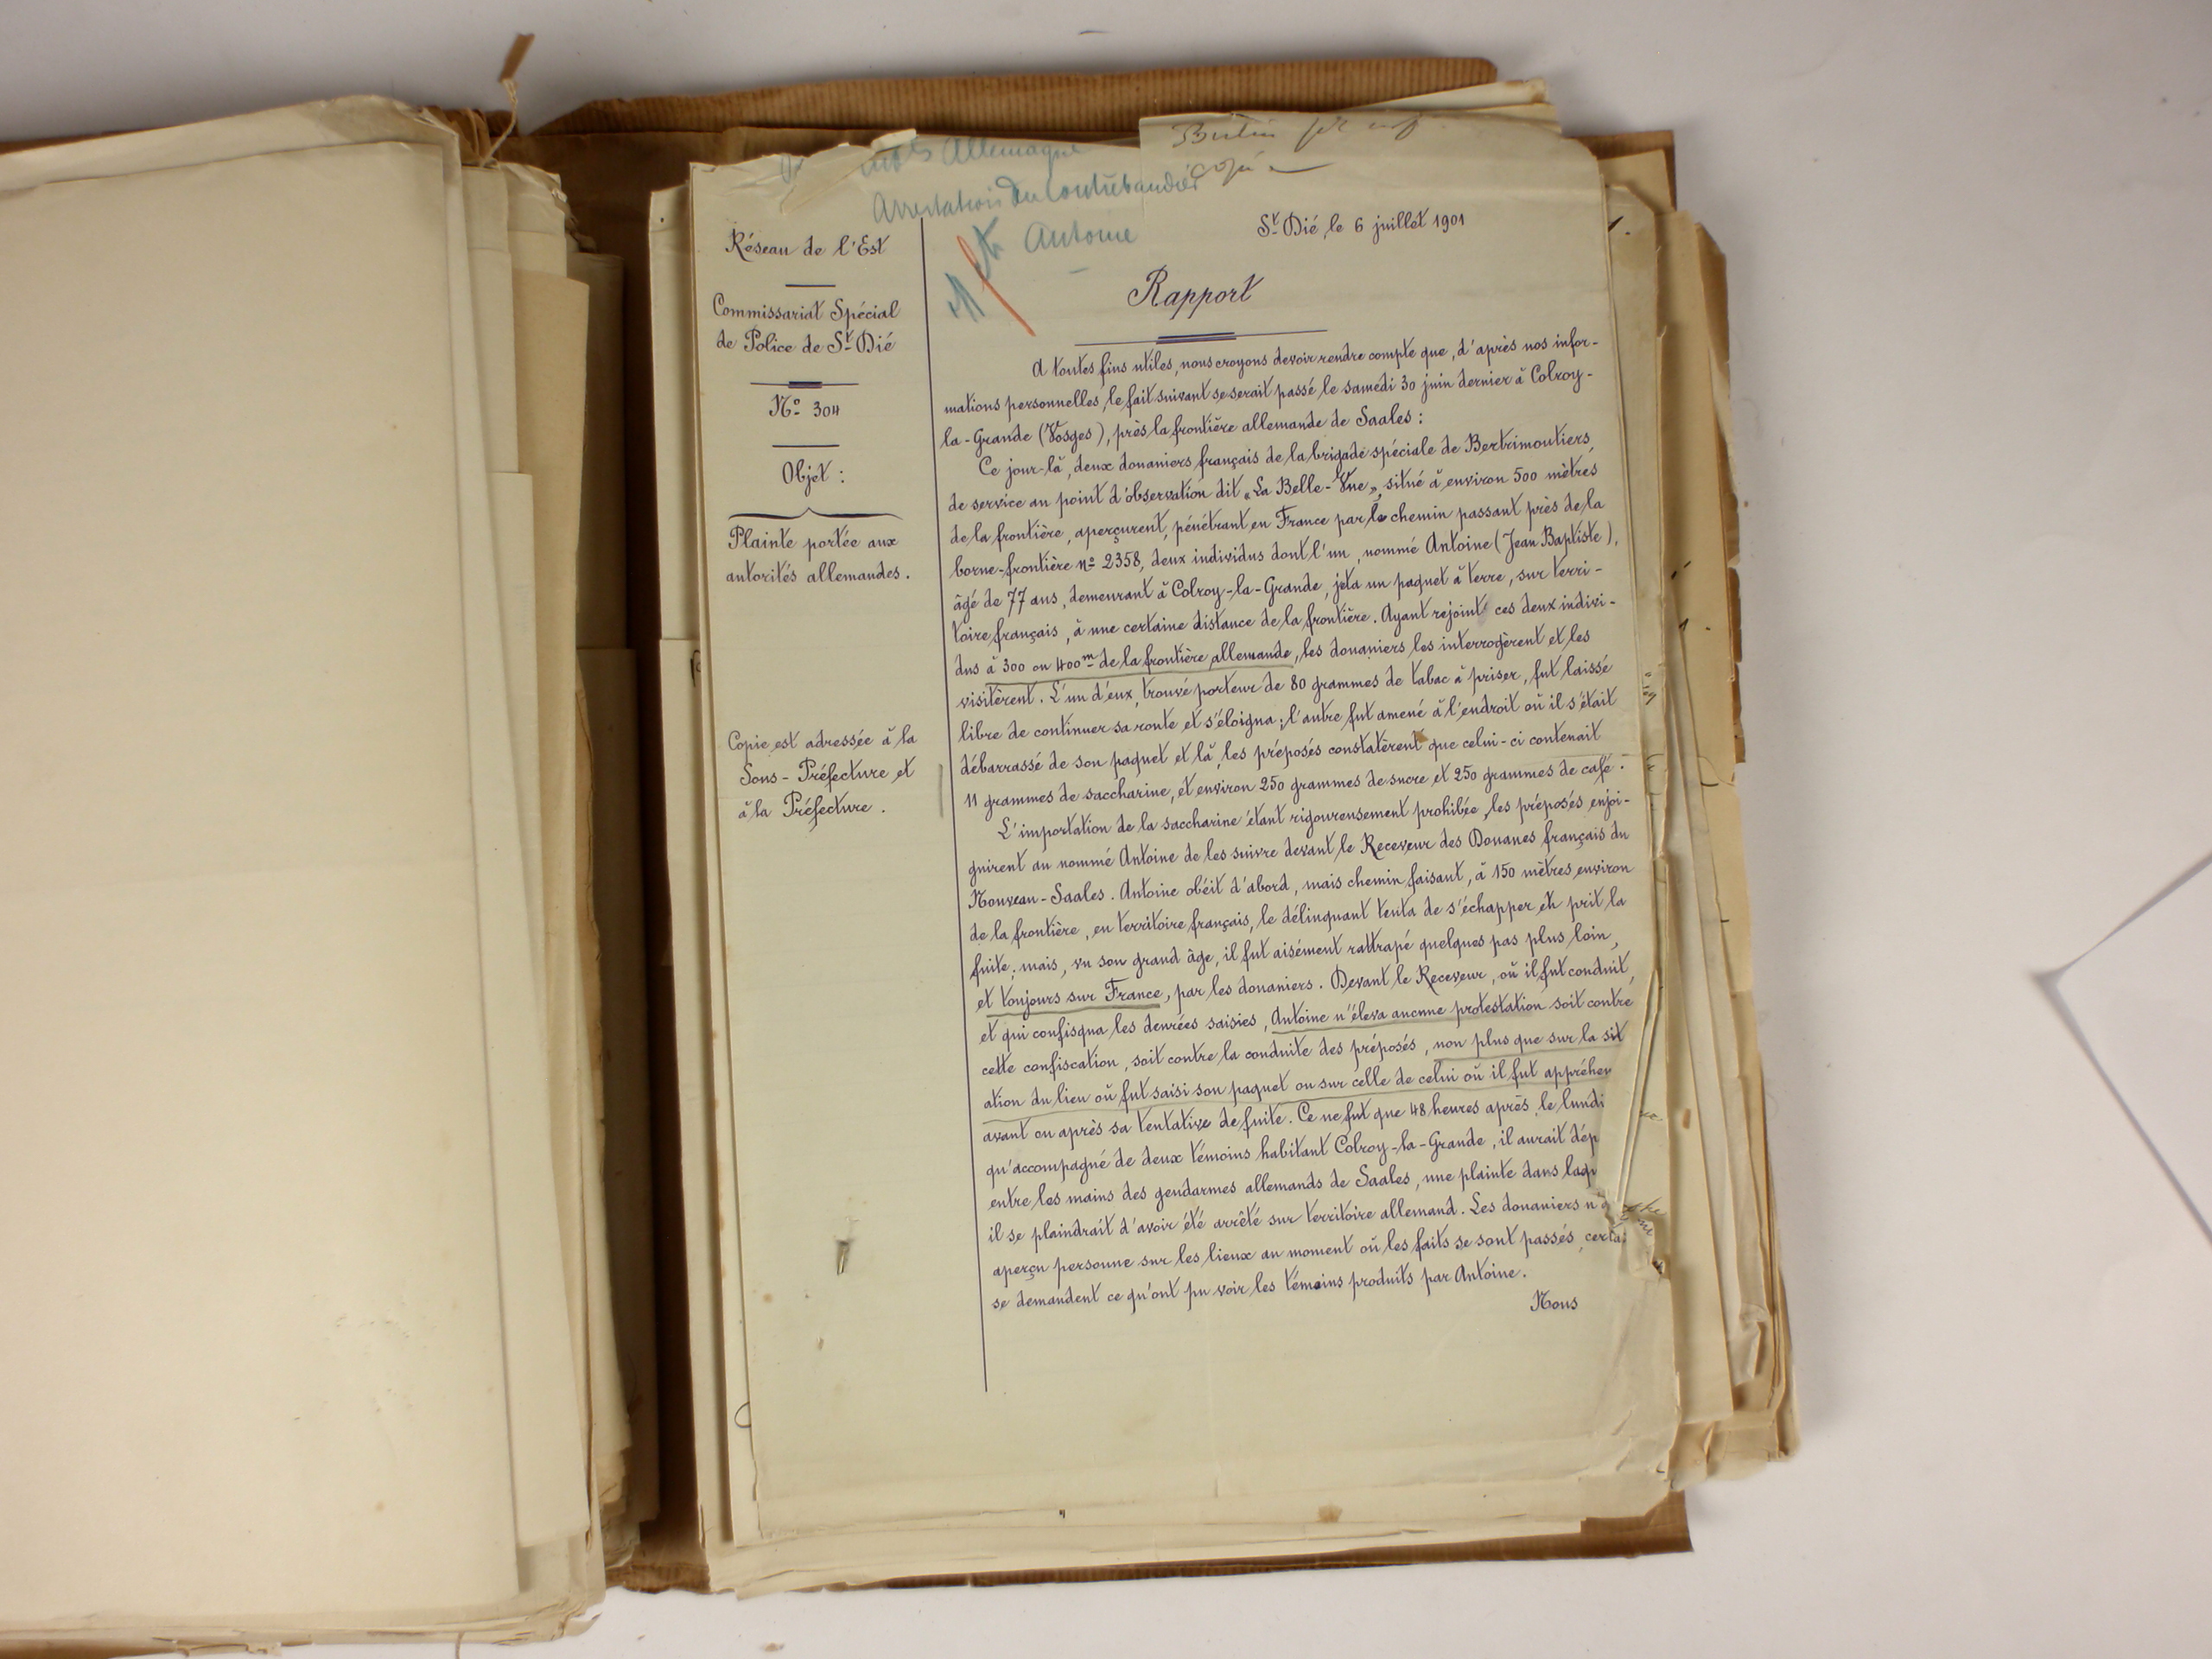 Allemagne
Arrestation du Contrebandier
Antoine
Berlin
copié
Réseau de l'Est
Commissariat Spécial
de Police de St Dié
No 304
Objet :
Plainte portée aux
autorités allemandes.
Copie est adressée à la
Sous-Préfecture et
à la Préfecture.
St Dié, le 6 juillet 1901
Rapport
A toutes fins utiles, nous croyons devoir rendre compte que, d'après nos infor-
mations personnelles, le fait suivant se serait passé le samedi 30 juin dernier à Colroy-
la-Grande (Vosges), près la frontière allemande de Saales :
Ce jour-là, deux douaniers français de la brigade spéciale de Bertrimoutiers,
de service au point d'observation dit « La Belle-Vue », situé à environ 500 mètres
de la frontière, aperçurent, pénétrant en France par le chemin passant près de la
borne-frontière No 2358, deux individus dont l'un, nommé Antoine (Jean Baptiste),
âgé de 77 ans, demeurant à Colroy-la-Grande, jeta un paquet à terre, sur terri-
toire français, à une certaine distance de la frontière. Ayant rejoint ces deux indivi-
dus à 300 ou 400m de la frontière allemande, les douaniers les interrogèrent et les
visitèrent. L'un d'eux, trouvé porteur de 80 grammes de tabac à priser, fut laissé
libre de continuer sa route et s'éloigna; l'autre fut amené à l'endroit où il s'était
débarrassé de son paquet et là, les préposés constatèrent que celui-ci contenait
11 grammes de saccharine, et environ 250 grammes de sucre et 250 grammes de café.
L'importation de la saccharine étant rigoureusement prohibée, les préposés enjoi-
gnirent au nommé Antoine de les suivre devant le Receveur des Douanes français du
Nouveau-Saales. Antoine obéit d'abord, mais chemin faisant, à 150 mètres environ
de la frontière, en territoire français, le délinquant tenta de s'échapper et prit la
fuite; mais, vu son grand âge, il fut aisément rattrapé quelques pas plus loin,
et toujours sur France, par les douaniers. Devant le Receveur, où il fut conduit,
et qui confisqua les denrées saisies, Antoine n'éleva aucune protestation soit contre
cette confiscation, soit contre la conduite des préposés, non plus que sur la sit
ation du lieu où fut saisi son paquet ou sur celle de celui où il fut appréhen
avant ou après sa tentative de fuite. Ce ne fut que 48 heures après, le lundi
qu'accompagné de deux témoins habitant Colroy-la-Grande, il aurait dép
entre les mains des gendarmes allemands de Saales, une plainte dans laqu
il se plaindrait d'avoir été arrêté sur territoire allemand. Les douaniers n'
aperçu personne sur les lieux au moment où les faits se sont passés, certa
se demandent ce qu'ont pu voir les témoins produits par Antoine.
Nous